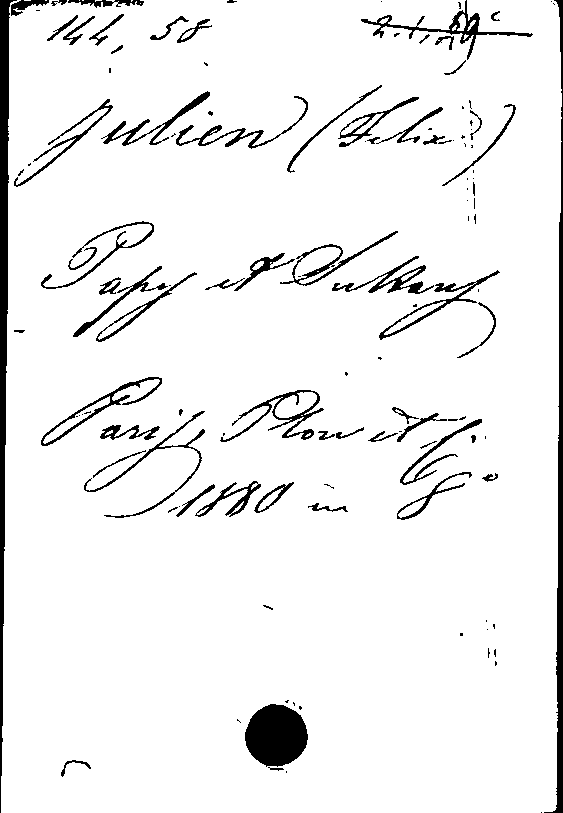 144, 58
Julien (Felix)
Papes et Sultans
Paris, Plon et Cie
1880 in 8°